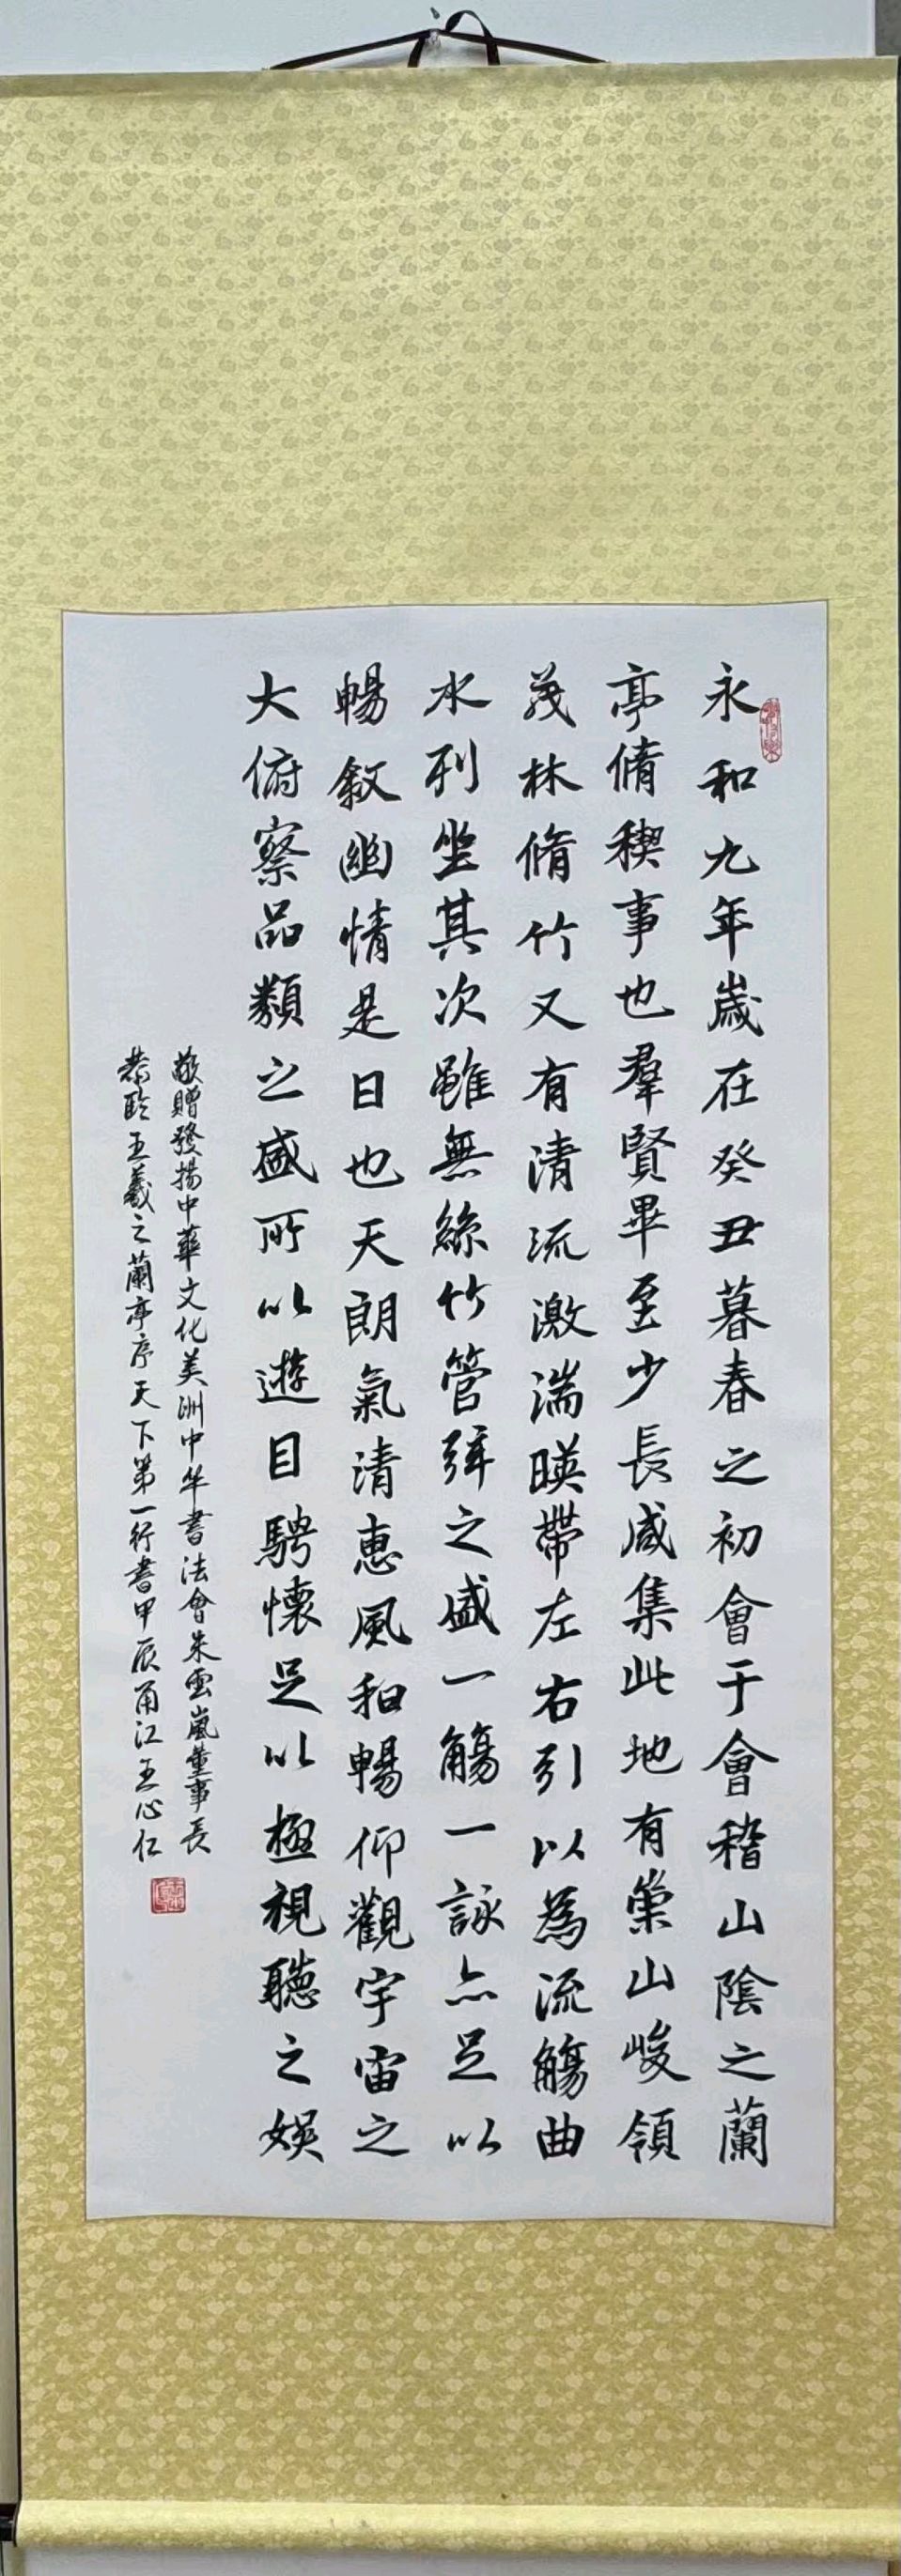 永和九年歲在癸丑暮春之初會于會稽山陰之蘭
亭脩稧事也羣賢畢至少長咸集此地有崇山峻領
茂林脩竹又有清流激湍暎帶左右引以為流觴曲
水列坐其次雖無絲竹管弦之盛一觴一詠亦足以
暢敘幽情是日也天朗氣清惠風和暢仰觀宇宙之
大俯察品類之盛所以遊目騁懷足以極視聽之娛
敬贈發揚中華文化美洲中华書法會朱雲嵐董事長
恭臨王羲之蘭亭序天下第一行書甲辰甬江王心仁